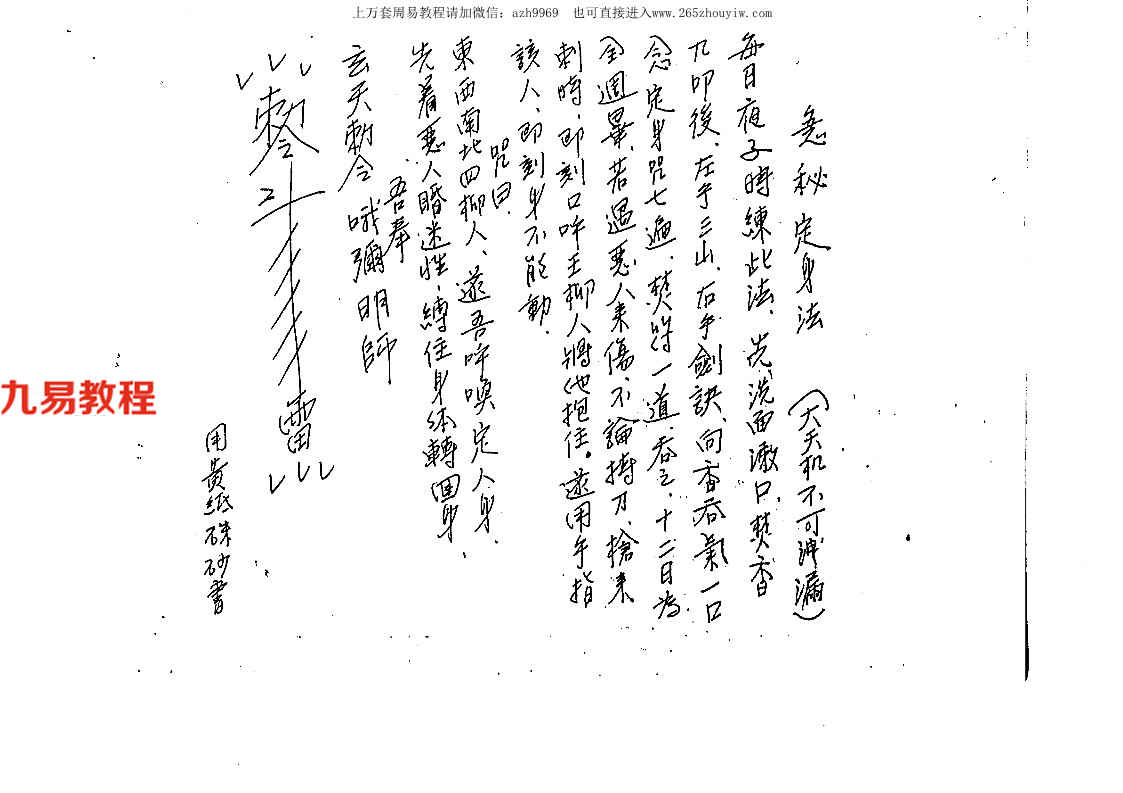 上万套周易教程请加微信：azh9969 也可直接进入www.265zhouyiw.com
急秘定身法 (大天机不可洩漏)
每日夜子時練此法、先洗面漱口、焚香
九叩後、左手三山、右手劍訣、向香吞氣一口
念定身咒七遍、焚符一道、吞之、十二日為
全週畢、若遇惡人來傷、不論持刀、槍來
刺時、即刻口吽王柳人將他抱住。遂用手指
該人、即刻身不能動、
咒曰、
東西南北四柳人、遂吾吽喚定人身、
先着惡人昏迷性、縛住身体轉回身、
吾奉
玄天勅令 哦彌明師
勅令 雷
用黃紙硃砂書
九易教程